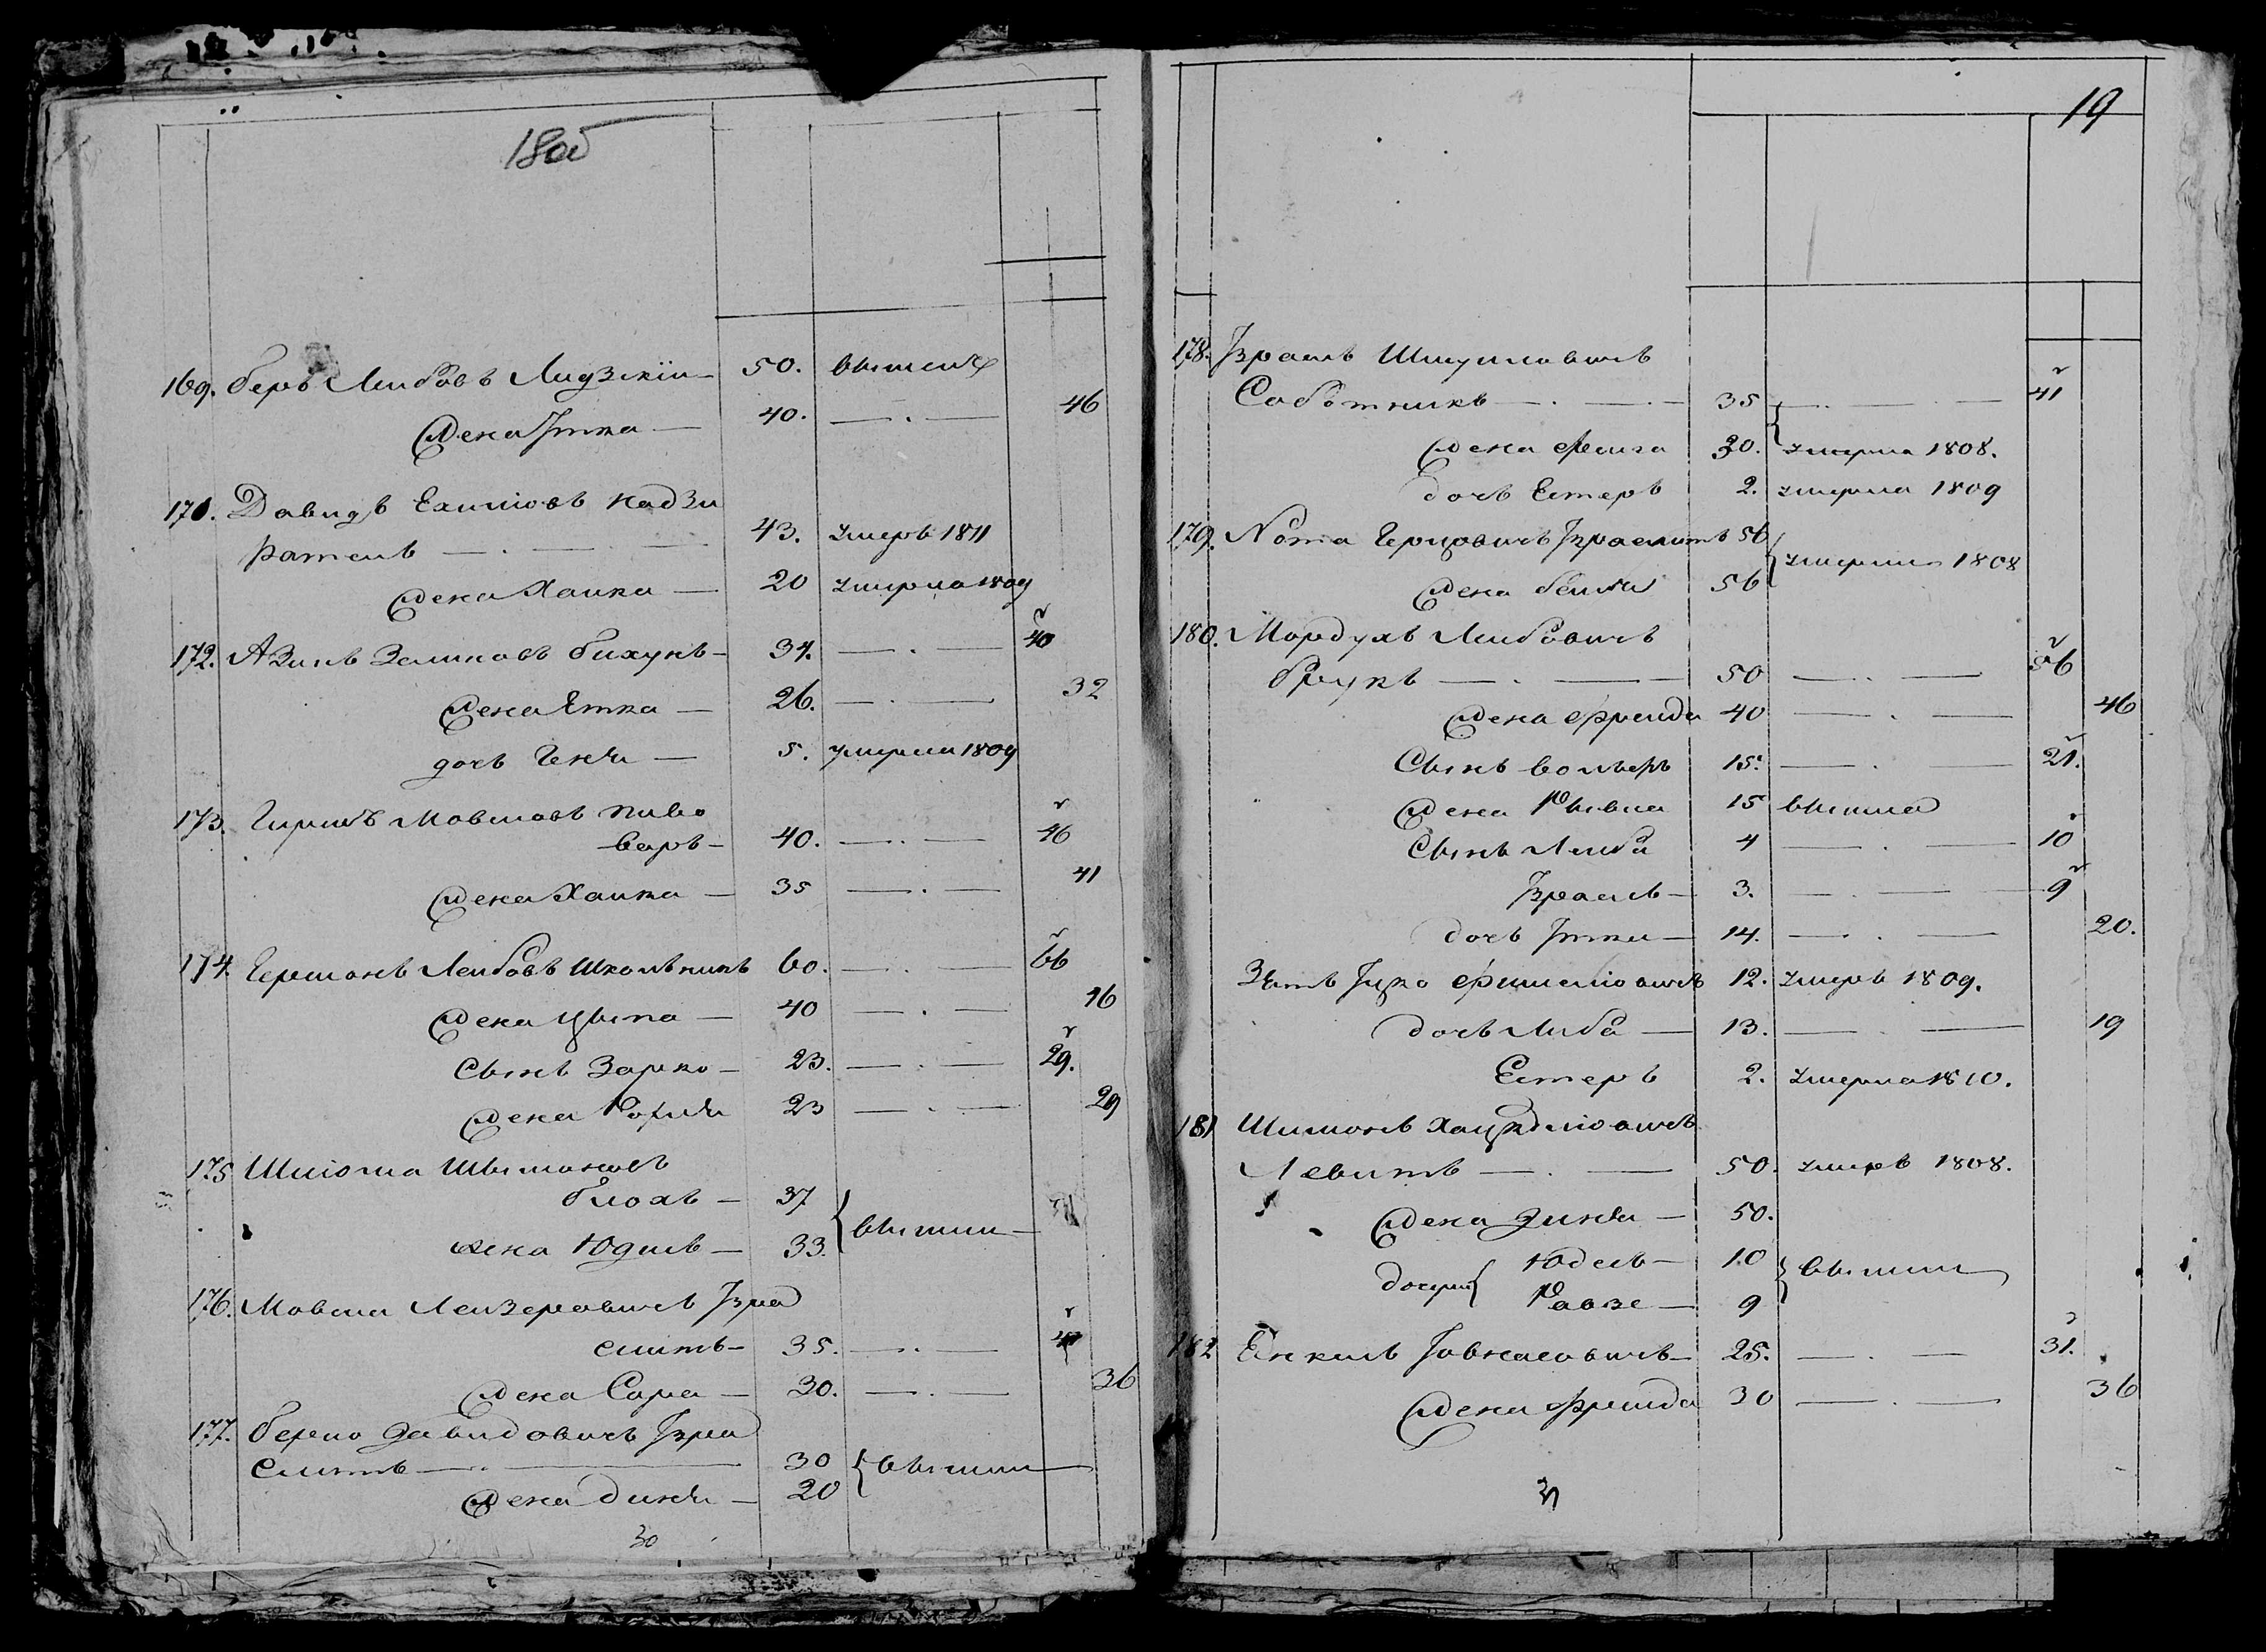 18об
169. Беръ Лейбовъ Лидзкій — 50. вышелъ
Жена Итка — 40. — . — 46
170. Давидъ Ехимовъ Надзи
ратель — . — 43. умеръ 1811
Жена Хаика — 20 умерла 1809
172. Азикъ Зелмковъ Бихукъ — 34. — . — 40
Жена Етка — 26. — . — 32
дочь Геня — 5. умерла 1809
173. Гиршъ Мовшовъ Пиво
варъ — 40. — . — 46
Жена Хаика — 35 — . — 41
174. Гершонъ Лейбовъ Школьникъ 60. — . — 66
Жена Цыпа — 40 — . — 46
Сынъ Зорко — 23. — . — 29.
Жена 23 — . — 29
175 Шлiома Шымановъ
Блохъ — 37
жена Юдись — 33. вышли —
176. Мовша Лейзеровичъ Изра
елитъ — 35. — . —
Жена Сора — 30. — . — 36
177. Берко Давидовичъ Изра
елитъ — . — 30 вышли —
Жена Диня — 20
30
19
178. Израиль Шмуиловичъ
Саботникъ — . — . — 35 — . — 41
Жена Фейга 30. умерла 1808.
дочь Естеръ 2. умерла 1809
179. Nота Герцовичъ Израелитъ 56
умерли 1808
Жена Бейля 56
180. Мордухъ Лейбовичъ
Брукъ — . — 50 — . — 56
Жена Фрейда 40 — . — 46
Сынъ Вольфъ 15. — . — 21.
Жена Ривка 15 вышла
Сынъ Лейба 4 — . — 10
Израиль — 3. — . — 9
дочь Итка — 14. — . — 20.
Зять Ицко Фишелiовичъ 12. умеръ 1809.
дочь Либа — 13. — . — 19
Естеръ 2. умерла 1810.
181 Шимонъ Хацкелiовичъ
Левитъ — . — 50. умеръ 1808.
Жена Зиня — 50.
дочери Юдесъ — 10 вышли
Равзе — 9
182 Енкель Іовнасовичъ — 25. — . — 31.
Жена Фрейда 30 — . — 36
31